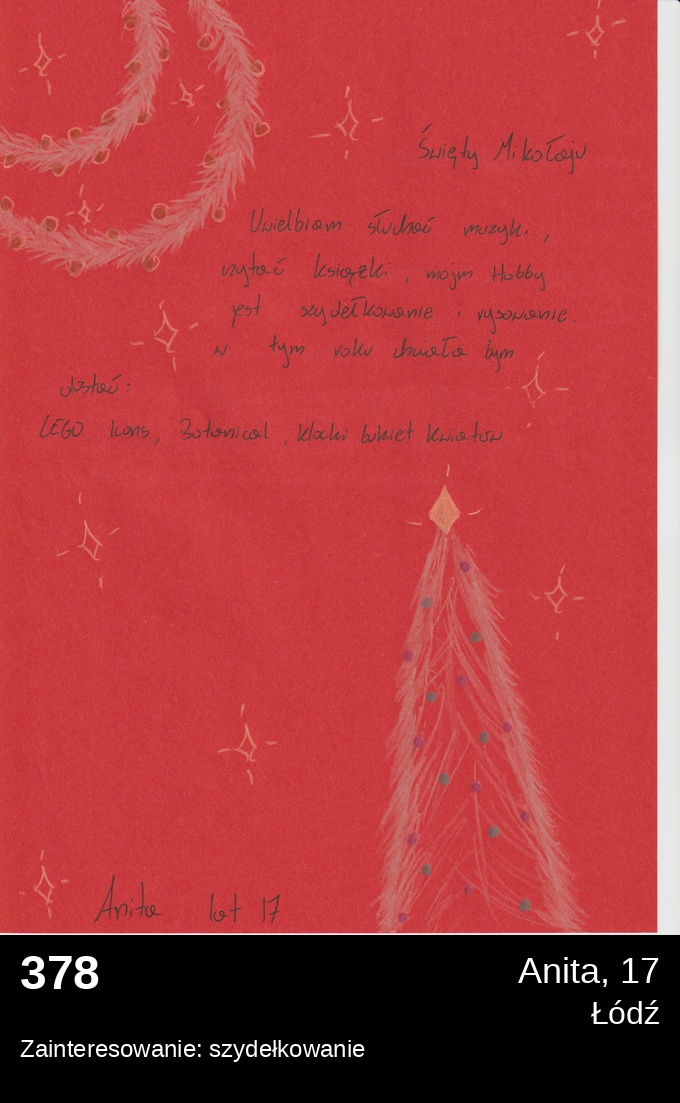 Święty Mikołaju
Uwielbiam słuchać muzyki,
czytać książki, mojm Hobby
jest szydełkowanie i rysowanie.
w tym roku chciała bym
dostać:
LEGO Icons, Botanical, klocki bukiet kwiatów
Anita lat 17
378
Anita, 17
Łódź
Zainteresowanie: szydełkowanie